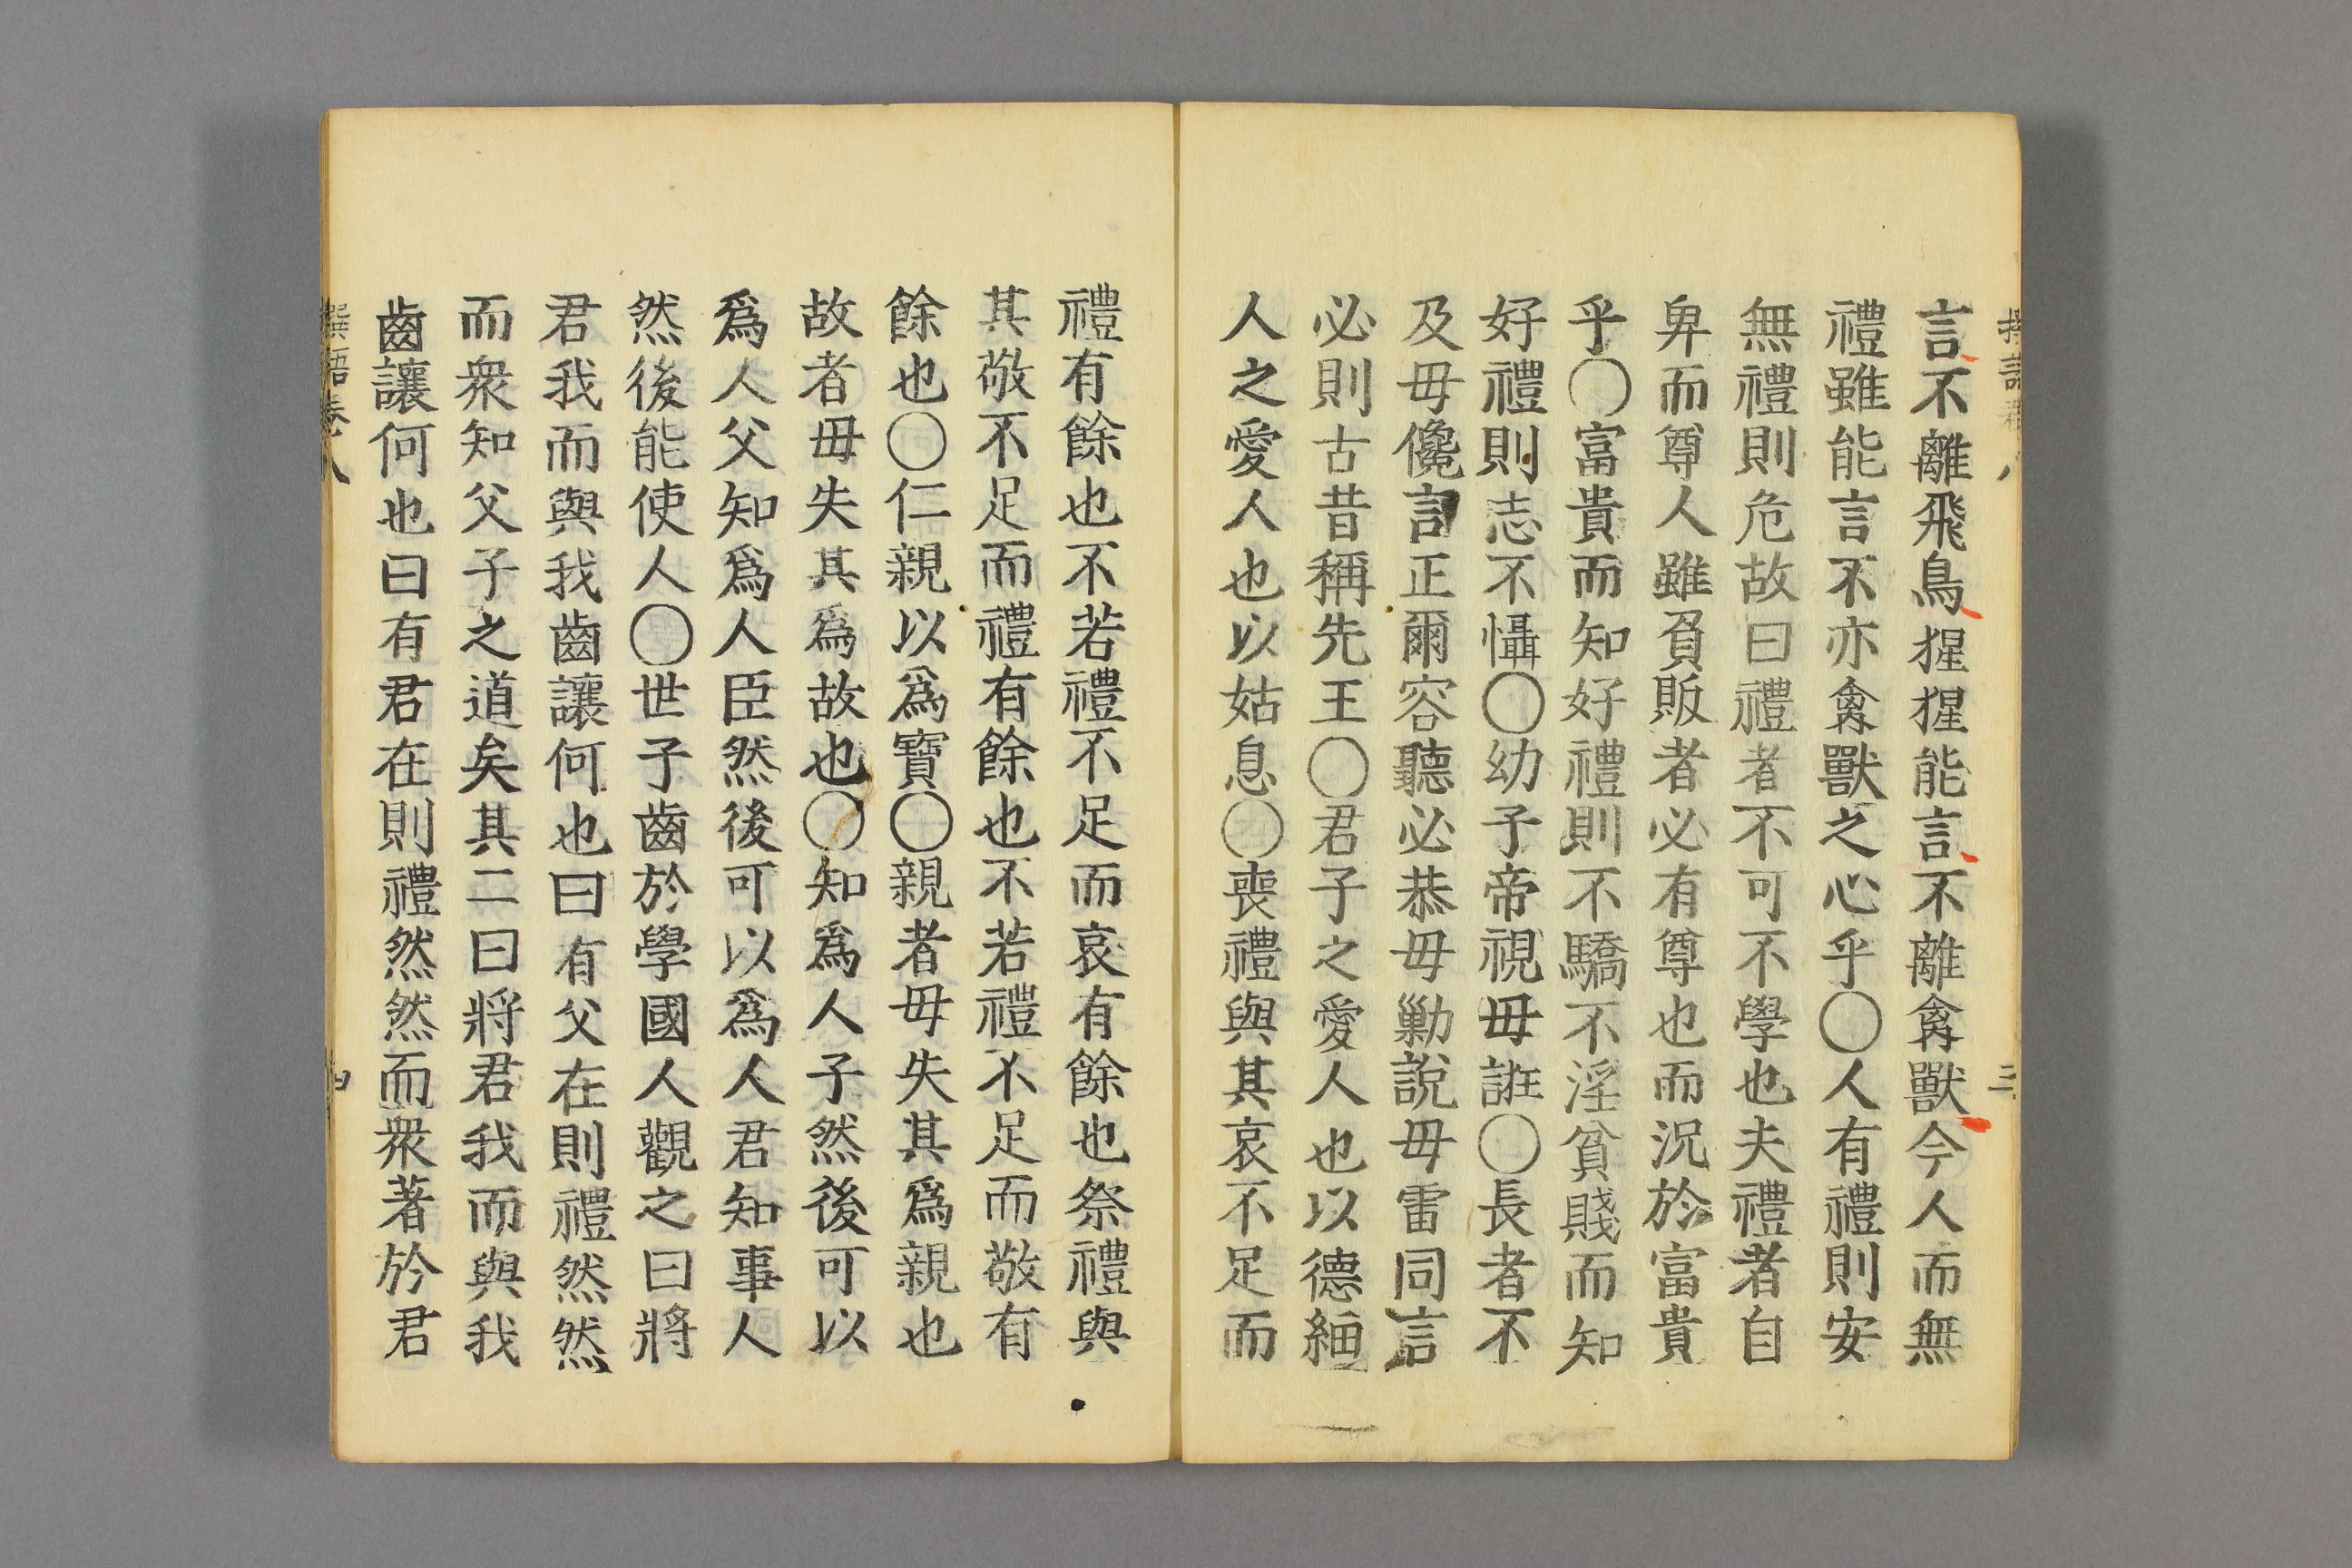 言不離飛鳥猩猩能言不離禽獸今人而無
禮雖能言不亦禽獸之心乎〇人有禮則安
無禮則危故曰禮者不可不學也夫禮者自
卑而尊人雖負販者必有尊也而況於富貴
乎〇富貴而知好禮則不驕不淫貧賤而知
好禮則志不懾〇幼子帝視毋誑〇長者不
及毋儳言正爾容聽必恭毋勦說毋雷同言
必則古昔稱先王〇君子之愛人也以德細
人之愛人也以姑息〇喪禮與其哀不足而
禮有餘也不若禮不足而哀有餘也祭禮與
其敬不足而禮有餘也不若禮不足而敬有
餘也〇仁親以爲寶〇親者毋失其爲親也
故者毋失其爲故也〇知爲人子然後可以
爲人父知爲人臣然後可以爲人君知事人
然後能使人〇世子齒於學國人觀之曰將
君我而與我齒讓何也曰有父在則禮然然
而衆知父子之道矣其二曰將君我而與我
齒讓何也曰有君在則禮然然而衆著於君
撰語卷八
四